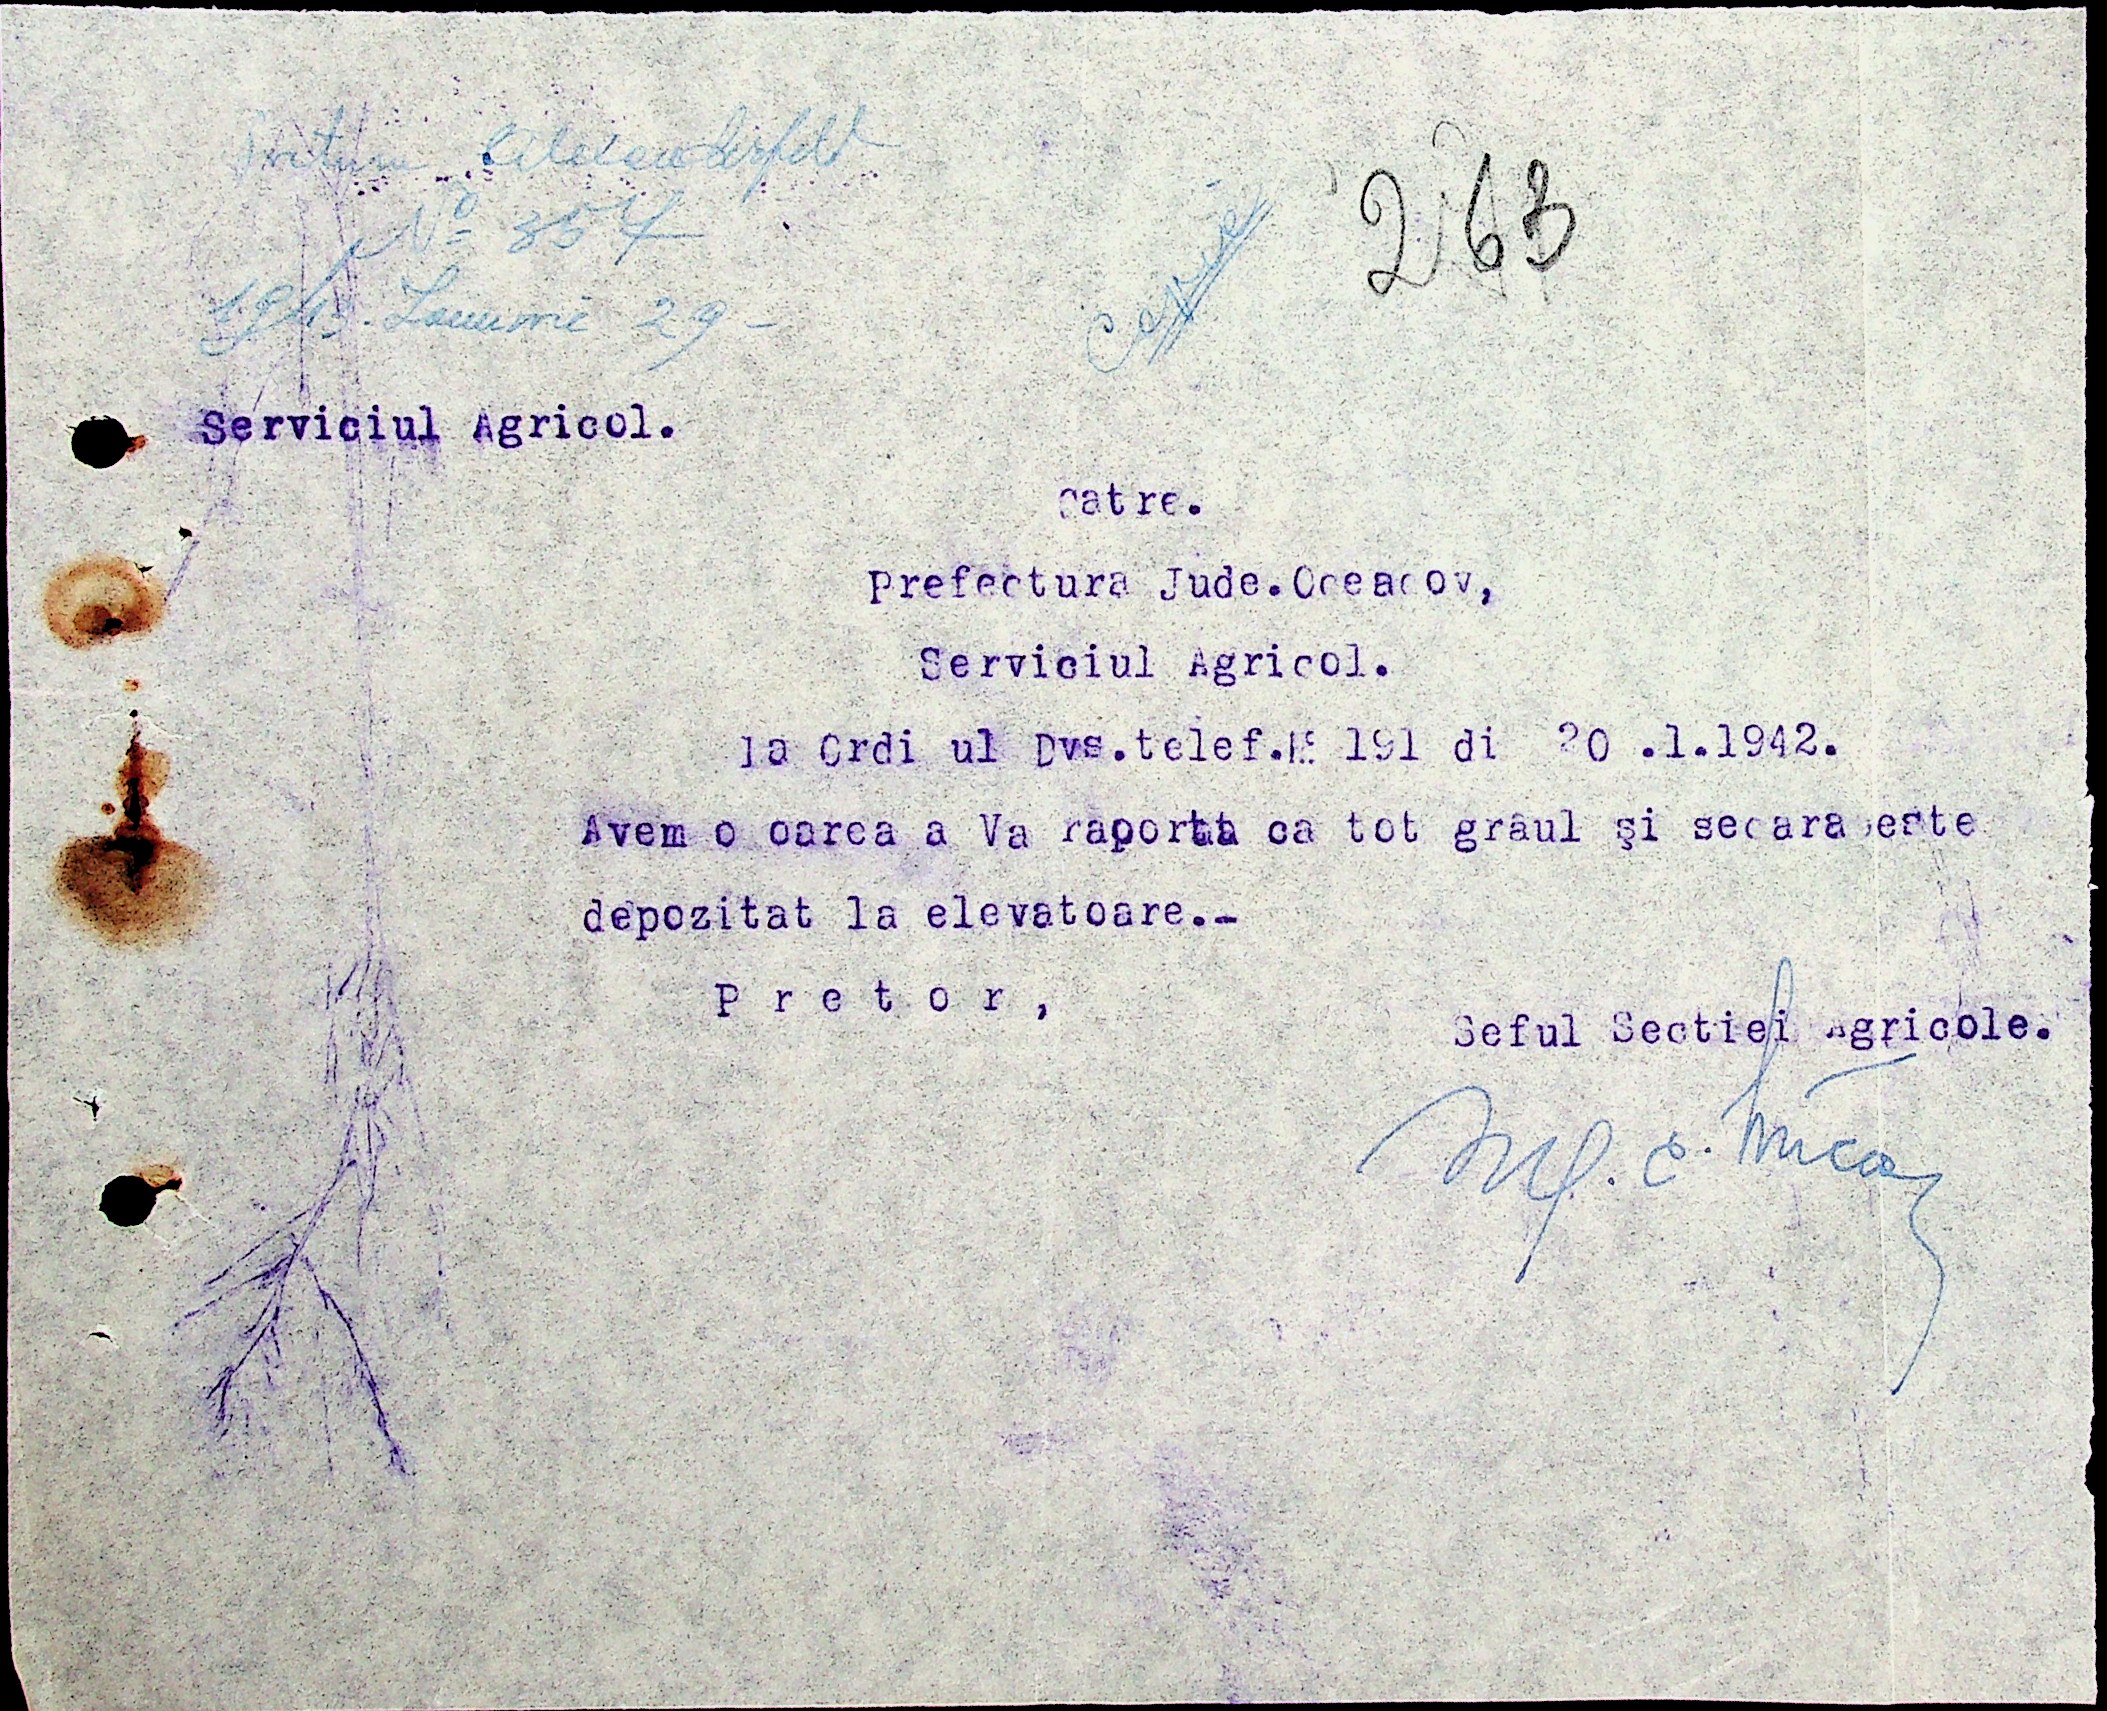 Pretura Alexanderfeld
No 857
1943 Ianuarie 29 -
Copie
263
Serviciul Agricol.
catre.
Prefectura Jude.Oceacov,
Serviciul Agricol.
la Ordi ul Dvs.telef.№ 191 di 20 .1.1942.
Avem o oarea a Va raporta ca tot grâul şi secara este
depozitat la elevatoare.-
P r e t o r ,
Seful Sectiei Agricole.